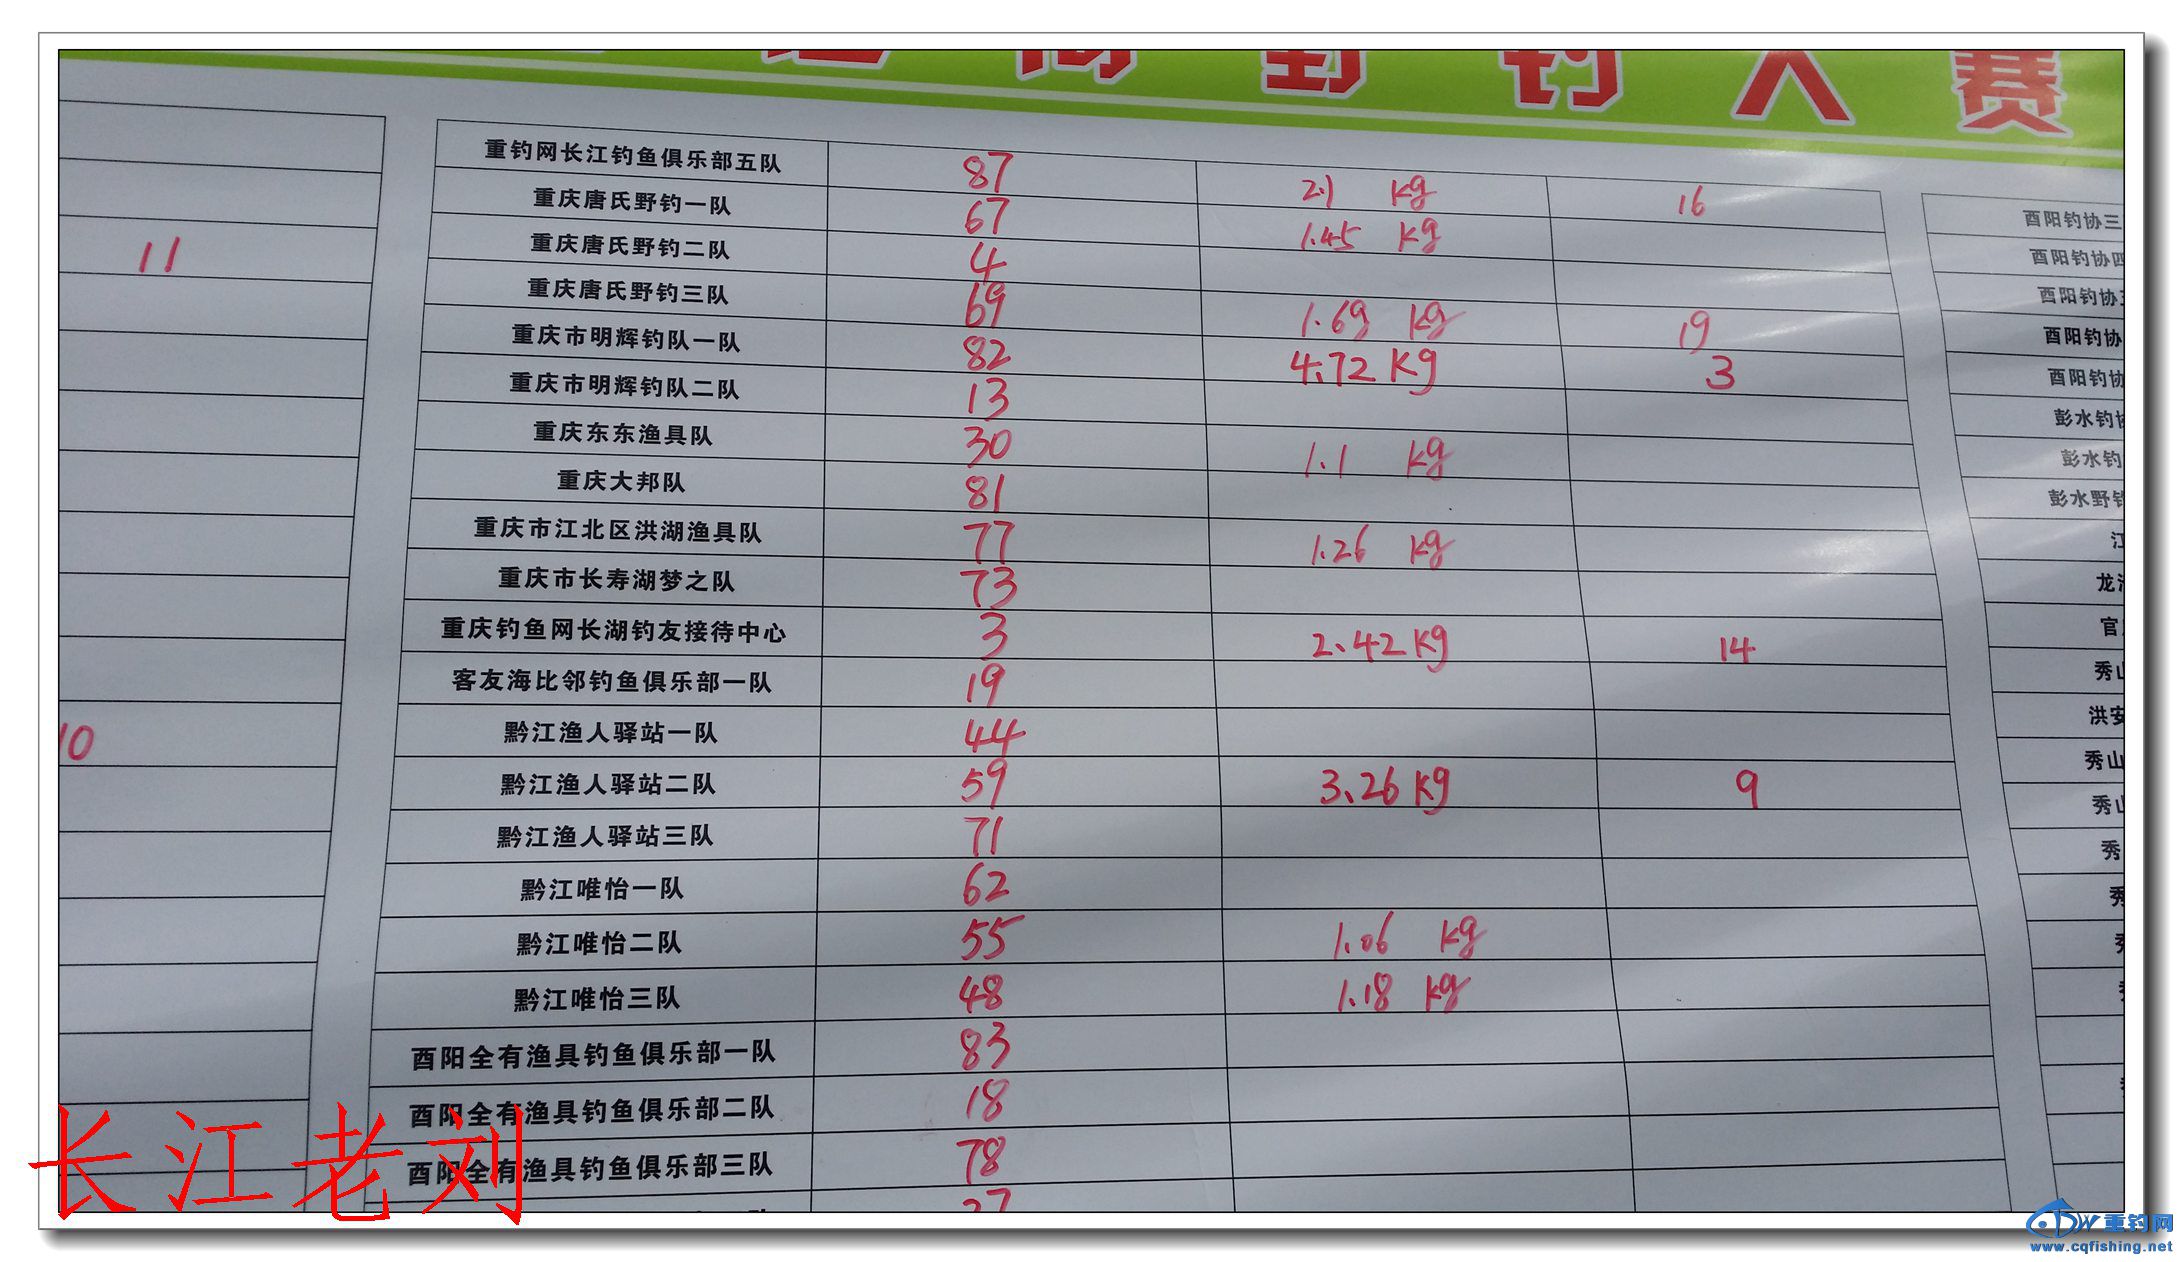 野钓大赛
11
10
重钓网长江钓鱼俱乐部五队 87 2.1 kg 16
重庆唐氏野钓一队 67 1.45 kg
重庆唐氏野钓二队 4
重庆唐氏野钓三队 69 1.69 kg 19
重庆市明辉钓队一队 82 4.72 kg 3
重庆市明辉钓队二队 13
重庆东东渔具队 30 1.1 kg
重庆大邦队 81
重庆市江北区洪湖渔具队 77 1.26 kg
重庆市长寿湖梦之队 73
重庆钓鱼网长湖钓友接待中心 3 2.42 kg 14
客友海比邻钓鱼俱乐部一队 19
黔江渔人驿站一队 44
黔江渔人驿站二队 59 3.26 kg 9
黔江渔人驿站三队 71
黔江唯怡一队 62
黔江唯怡二队 55 1.06 kg
黔江唯怡三队 48 1.18 kg
酉阳全有渔具钓鱼俱乐部一队 83
酉阳全有渔具钓鱼俱乐部二队 18
酉阳全有渔具钓鱼俱乐部三队 78
酉阳钓协三
酉阳钓协四
酉阳钓协
酉阳钓协
酉阳钓协
彭水钓
彭水钓
彭水野钓
江
龙
官
秀山
洪安
秀山
秀山
秀
秀
长江老刘
重钓网
www.cqfishing.net